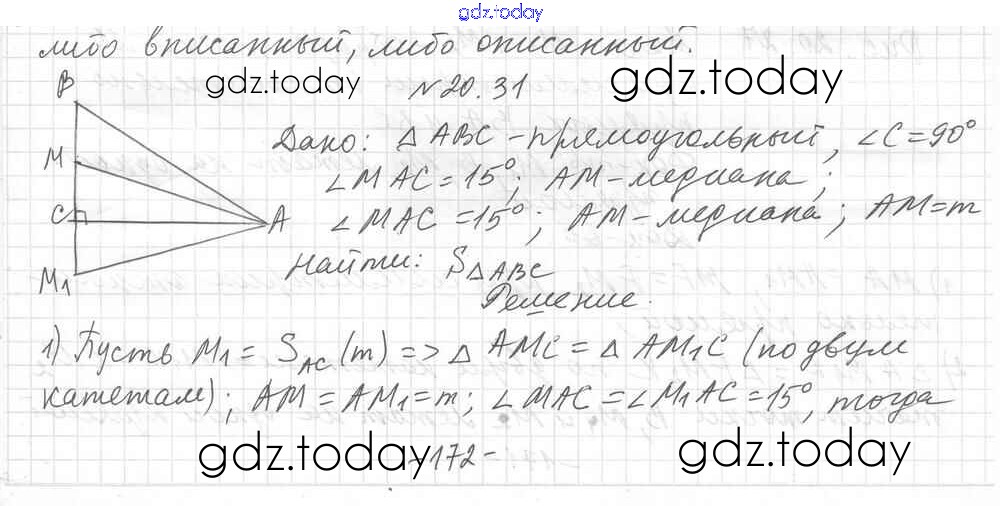 gdz.today
либо вписанный, либо описанный.
gdz.today №20.31 gdz.today
B
Дано: △ABC - прямоугольный, ∠C=90°
M
∠MAC=15°; AM-медиана;
C
A
∠MAC=15°; AM-медиана; AM=m
M₁
Найти: S△ABC
Решение.
1) Пусть M₁ = S_AC(m) => △AMC = △AM₁C (по двум
катетам); AM=AM₁=m; ∠MAC=∠M₁AC=15°, тогда
gdz.today -172- gdz.today